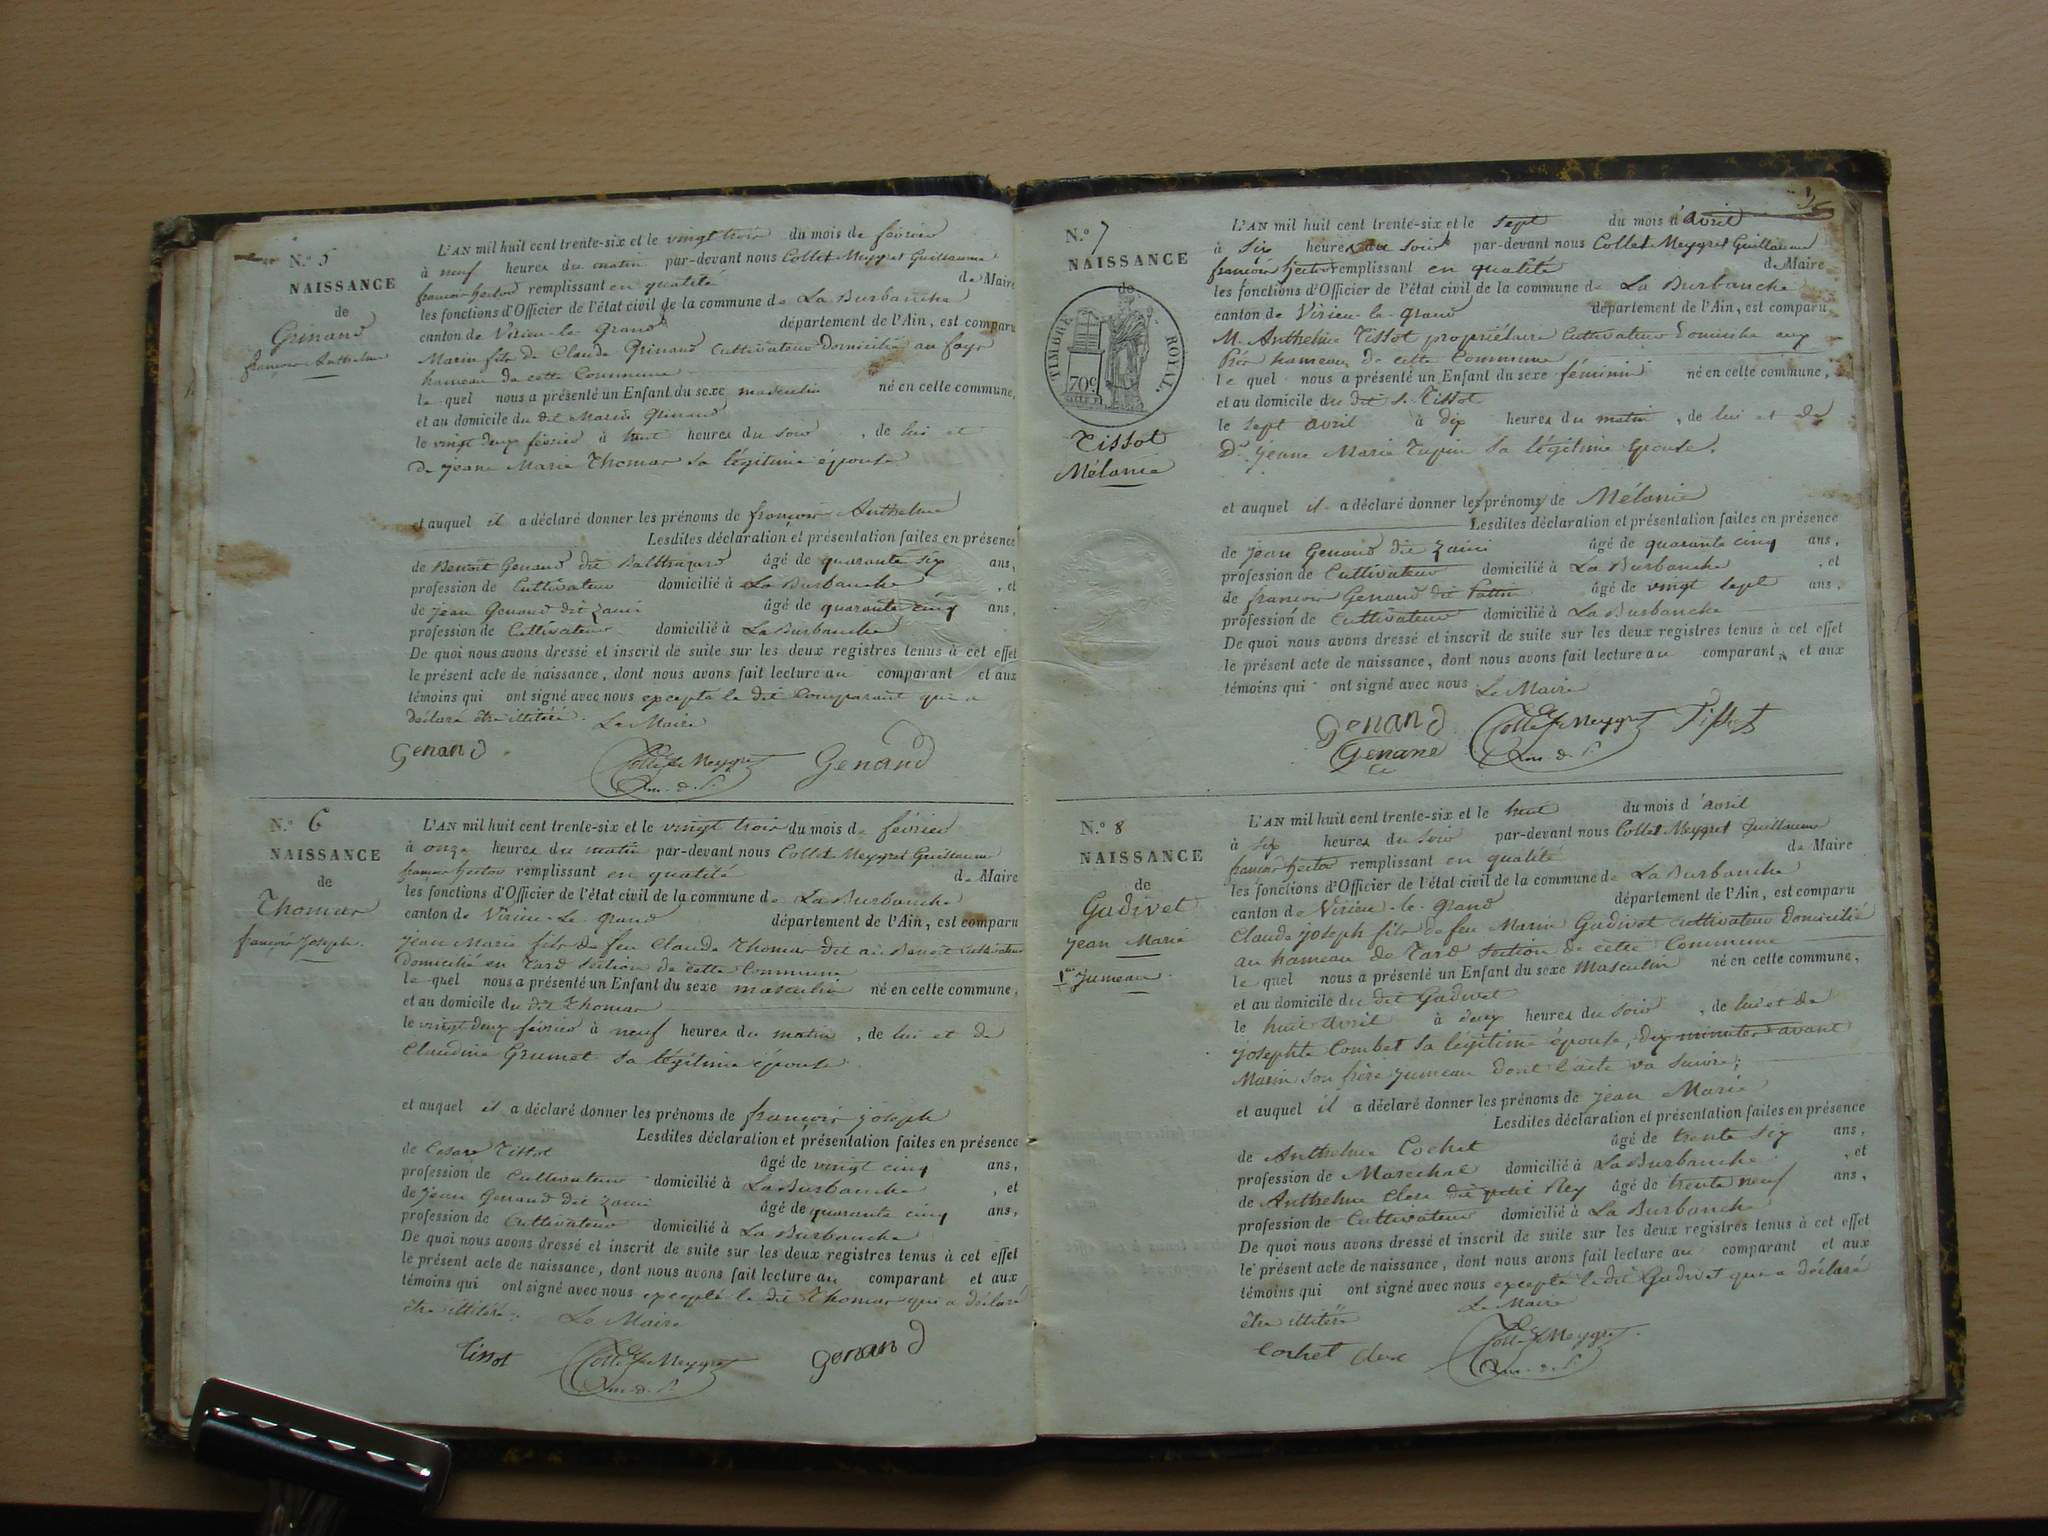 N.° 5
NAISSANCE
de
Grinand
françois Anthelme
L'AN mil huit cent trente-six et le vingt trois du mois de février
à neuf heures du matin par-devant nous Collet-Meygret Guillaume
françois hector remplissant en qualité de Maire
les fonctions d'Officier de l'état civil de la commune de La Burbanche
canton de Virieu-le-grand département de l'Ain, est comparu
Marin fils de Claude Grinand Cultivateur Domicilié au fays
hameau de cette Commune
le quel nous a présenté un Enfant du sexe masculin né en cette commune,
et au domicile du dit Marin Grinand
le vingt deux février à huit heures du soir, de lui et
De jeane Marie Thomas sa légitime épouse
et auquel il a déclaré donner les prénoms de françois Anthelme
Lesdites déclaration et présentation faites en présence
de Benoit Genand dit Balthazard âgé de quarante six ans,
profession de Cultivateur domicilié à La Burbanche, et
de jean Genand dit zaini âgé de quarante cinq ans,
profession de Cultivateur domicilié à La Burbanche
De quoi nous avons dressé et inscrit de suite sur les deux registres tenus à cet effet
le présent acte de naissance, dont nous avons fait lecture au comparant et aux
témoins qui ont signé avec nous excepté le dit Comparant qui a
déclaré être illitéré. Le Maire
Genand Collet Meygret Genand
N.° 6
NAISSANCE
de
Thomas
françois Joseph.
L'AN mil huit cent trente-six et le vingt trois du mois de février
à onze heures du matin par-devant nous Collet-Meygret Guillaume
françois hector remplissant en qualité de Maire
les fonctions d'Officier de l'état civil de la commune de La Burbanche
canton de Virieu-Le-grand département de l'Ain, est comparu
jean Marie fils de feu Claude Thomas dit Benoit Cultivateur
Domicilié en Tard Section de cette Commune
le quel nous a présenté un Enfant du sexe masculin né en cette commune,
et au domicile du dit Thomas
le vingt deux février à neuf heures du matin, de lui et de
Claudine Grumet sa légitime épouse
et auquel il a déclaré donner les prénoms de françois joseph
Lesdites déclaration et présentation faites en présence
de Cesare Tissot âgé de vingt cinq ans,
profession de Cultivateur domicilié à La Burbanche, et
de jean Genand dit zaini âgé de quarante cinq ans,
profession de Cultivateur domicilié à La Burbanche
De quoi nous avons dressé et inscrit de suite sur les deux registres tenus à cet effet
le présent acte de naissance, dont nous avons fait lecture au comparant et aux
témoins qui ont signé avec nous excepté le dit Thomas qui a déclaré
être illitéré. Le Maire
Tissot Collet Meygret Genand
N.° 7
NAISSANCE
de
TIMBRE ROYAL.
70c
Tissot
Mélanie
L'AN mil huit cent trente-six et le sept du mois d'avril
à six heures du soir par-devant nous Collet-Meygret Guillaume
françois hector remplissant en qualité de Maire
les fonctions d'Officier de l'état civil de la commune de La Burbanche
canton de Virieu-le-grand département de l'Ain, est comparu
M. Anthelme Tissot propriétaire Cultivateur Domicilié aux
hameau de cette Commune
le quel nous a présenté un Enfant du sexe féminin né en cette commune,
et au domicile du dit S. Tissot
le sept avril à dix heures du matin, de lui et De
De jeane Marie Tupin sa légitime épouse.
et auquel il a déclaré donner les prénoms de Mélanie
Lesdites déclaration et présentation faites en présence
de jean Genand dit zaini âgé de quarante cinq ans,
profession de Cultivateur domicilié à La Burbanche, et
de françois Genand dit âgé de vingt sept ans,
profession de Cultivateur domicilié à La Burbanche
De quoi nous avons dressé et inscrit de suite sur les deux registres tenus à cet effet
le présent acte de naissance, dont nous avons fait lecture au comparant, et aux
témoins qui ont signé avec nous Le Maire
Genand Collet Meygret Tissot
Genand
N.° 8
NAISSANCE
de
Gudivet
jean Marie
1er Jumeau.
L'AN mil huit cent trente-six et le huit du mois d'avril
à six heures du soir par-devant nous Collet Meygret Guillaume
françois hector remplissant en qualité de Maire
les fonctions d'Officier de l'état civil de la commune de La Burbanche
canton de Virieu-le-grand département de l'Ain, est comparu
Claude joseph fils de feu Marin Gudivet Cultivateur domicilié
au hameau de Tard Section de cette Commune
le quel nous a présenté un Enfant du sexe Masculin né en cette commune,
et au domicile du dit Gudivet
le huit avril à deux heures du soir, de lui et de
josephte Combet sa légitime épouse, dix minutes avant
Marin son frère jumeau dont l'acte va suivre;
et auquel il a déclaré donner les prénoms de jean Marie
Lesdites déclaration et présentation faites en présence
de Anthelme Cochet âgé de trente six ans,
profession de Marechal domicilié à La Burbanche, et
de Anthelme Clerc dit petit Rey âgé de trente neuf ans,
profession de Cultivateur domicilié à La Burbanche
De quoi nous avons dressé et inscrit de suite sur les deux registres tenus à cet effet
le présent acte de naissance, dont nous avons fait lecture au comparant et aux
témoins qui ont signé avec nous excepté le dit Gudivet qui a déclaré
être illitéré Le Maire
Cochet Clerc Collet Meygret